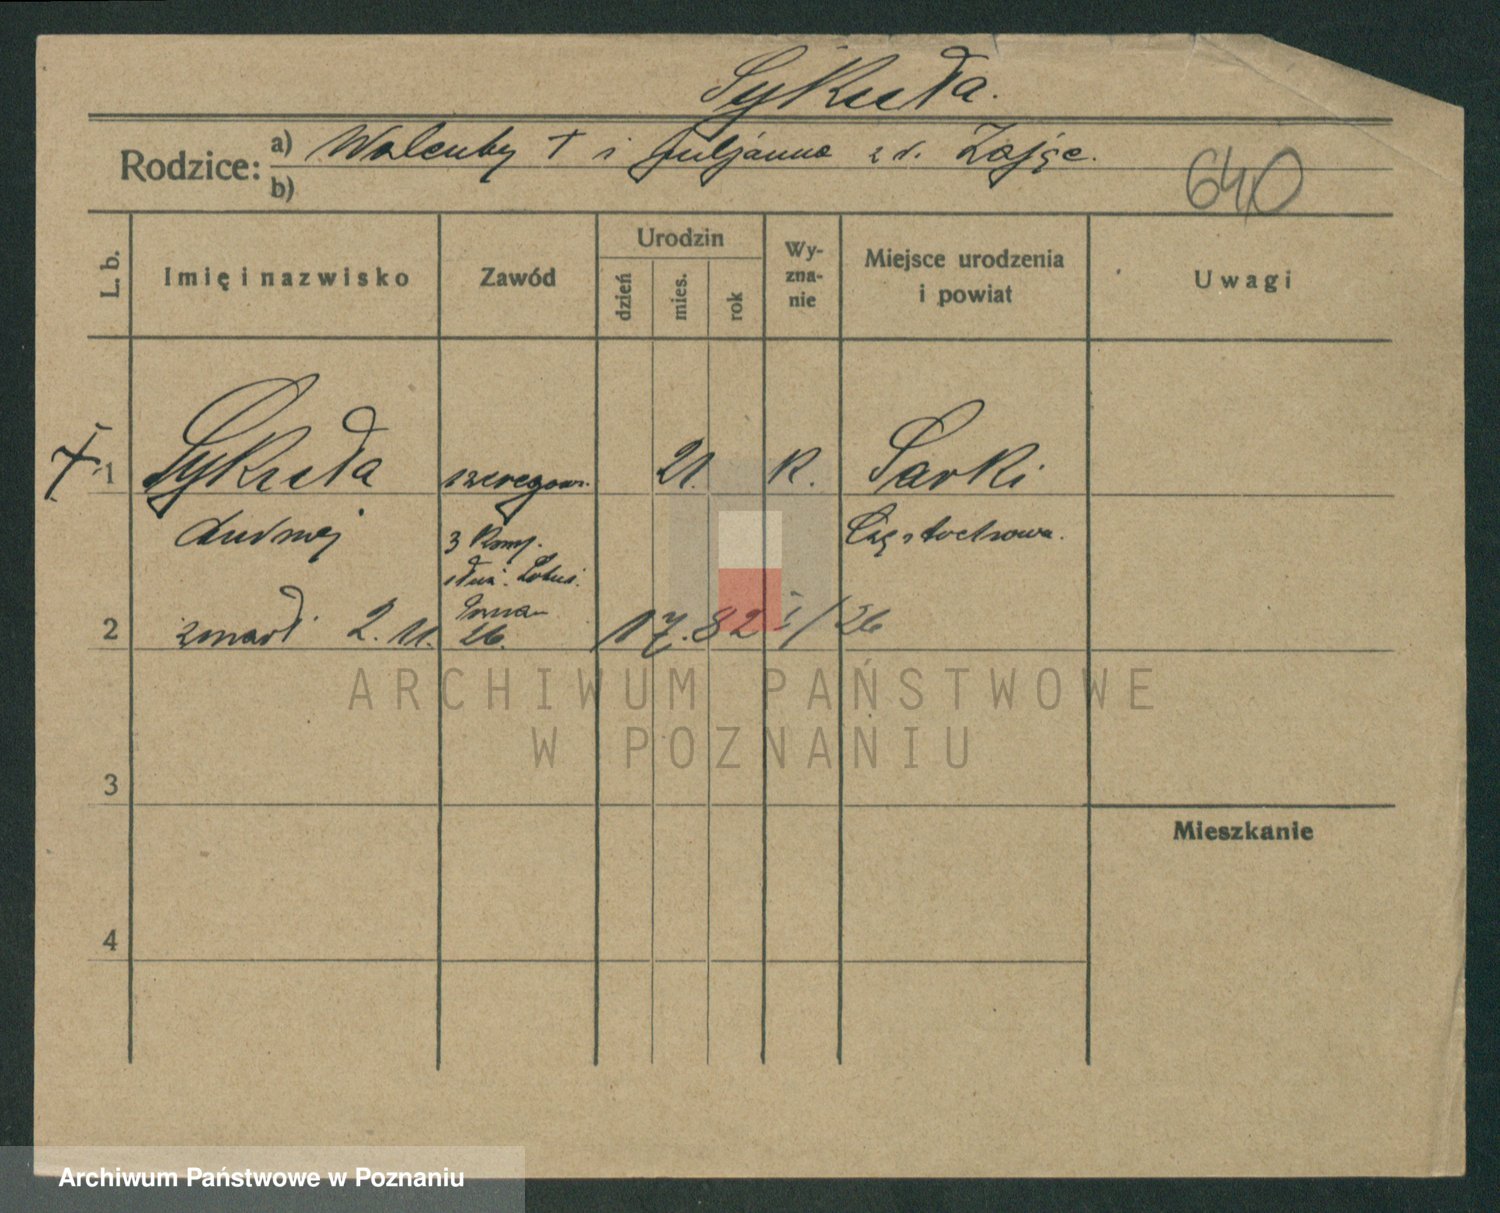 Sykuła.
Rodzice: a) Walenty † i Juljanna z d. Zając.
b)
640
L. b.
Imię i nazwisko
Zawód
Urodzin
dzień
mies.
rok
Wy-
zna-
nie
Miejsce urodzenia
i powiat
Uwagi
1 Sykuła szeregow. 21. R. Sarki
3 Komp. Częstochowa.
2 zmarł 2. 11. 26. 17. 82 I/26
ARCHIWUM PAŃSTWOWE
W POZNANIU
3
Mieszkanie
4
Archiwum Państwowe w Poznaniu